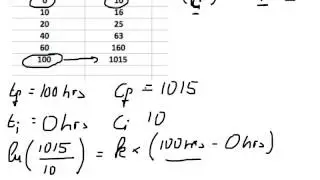 0 10
10 16
20 25
40 63
60 160
100 1015
tf = 100 hrs Cf = 1015
ti = 0 hrs Ci 10
ln(1015/10) = k × (100 hrs - 0 hrs)